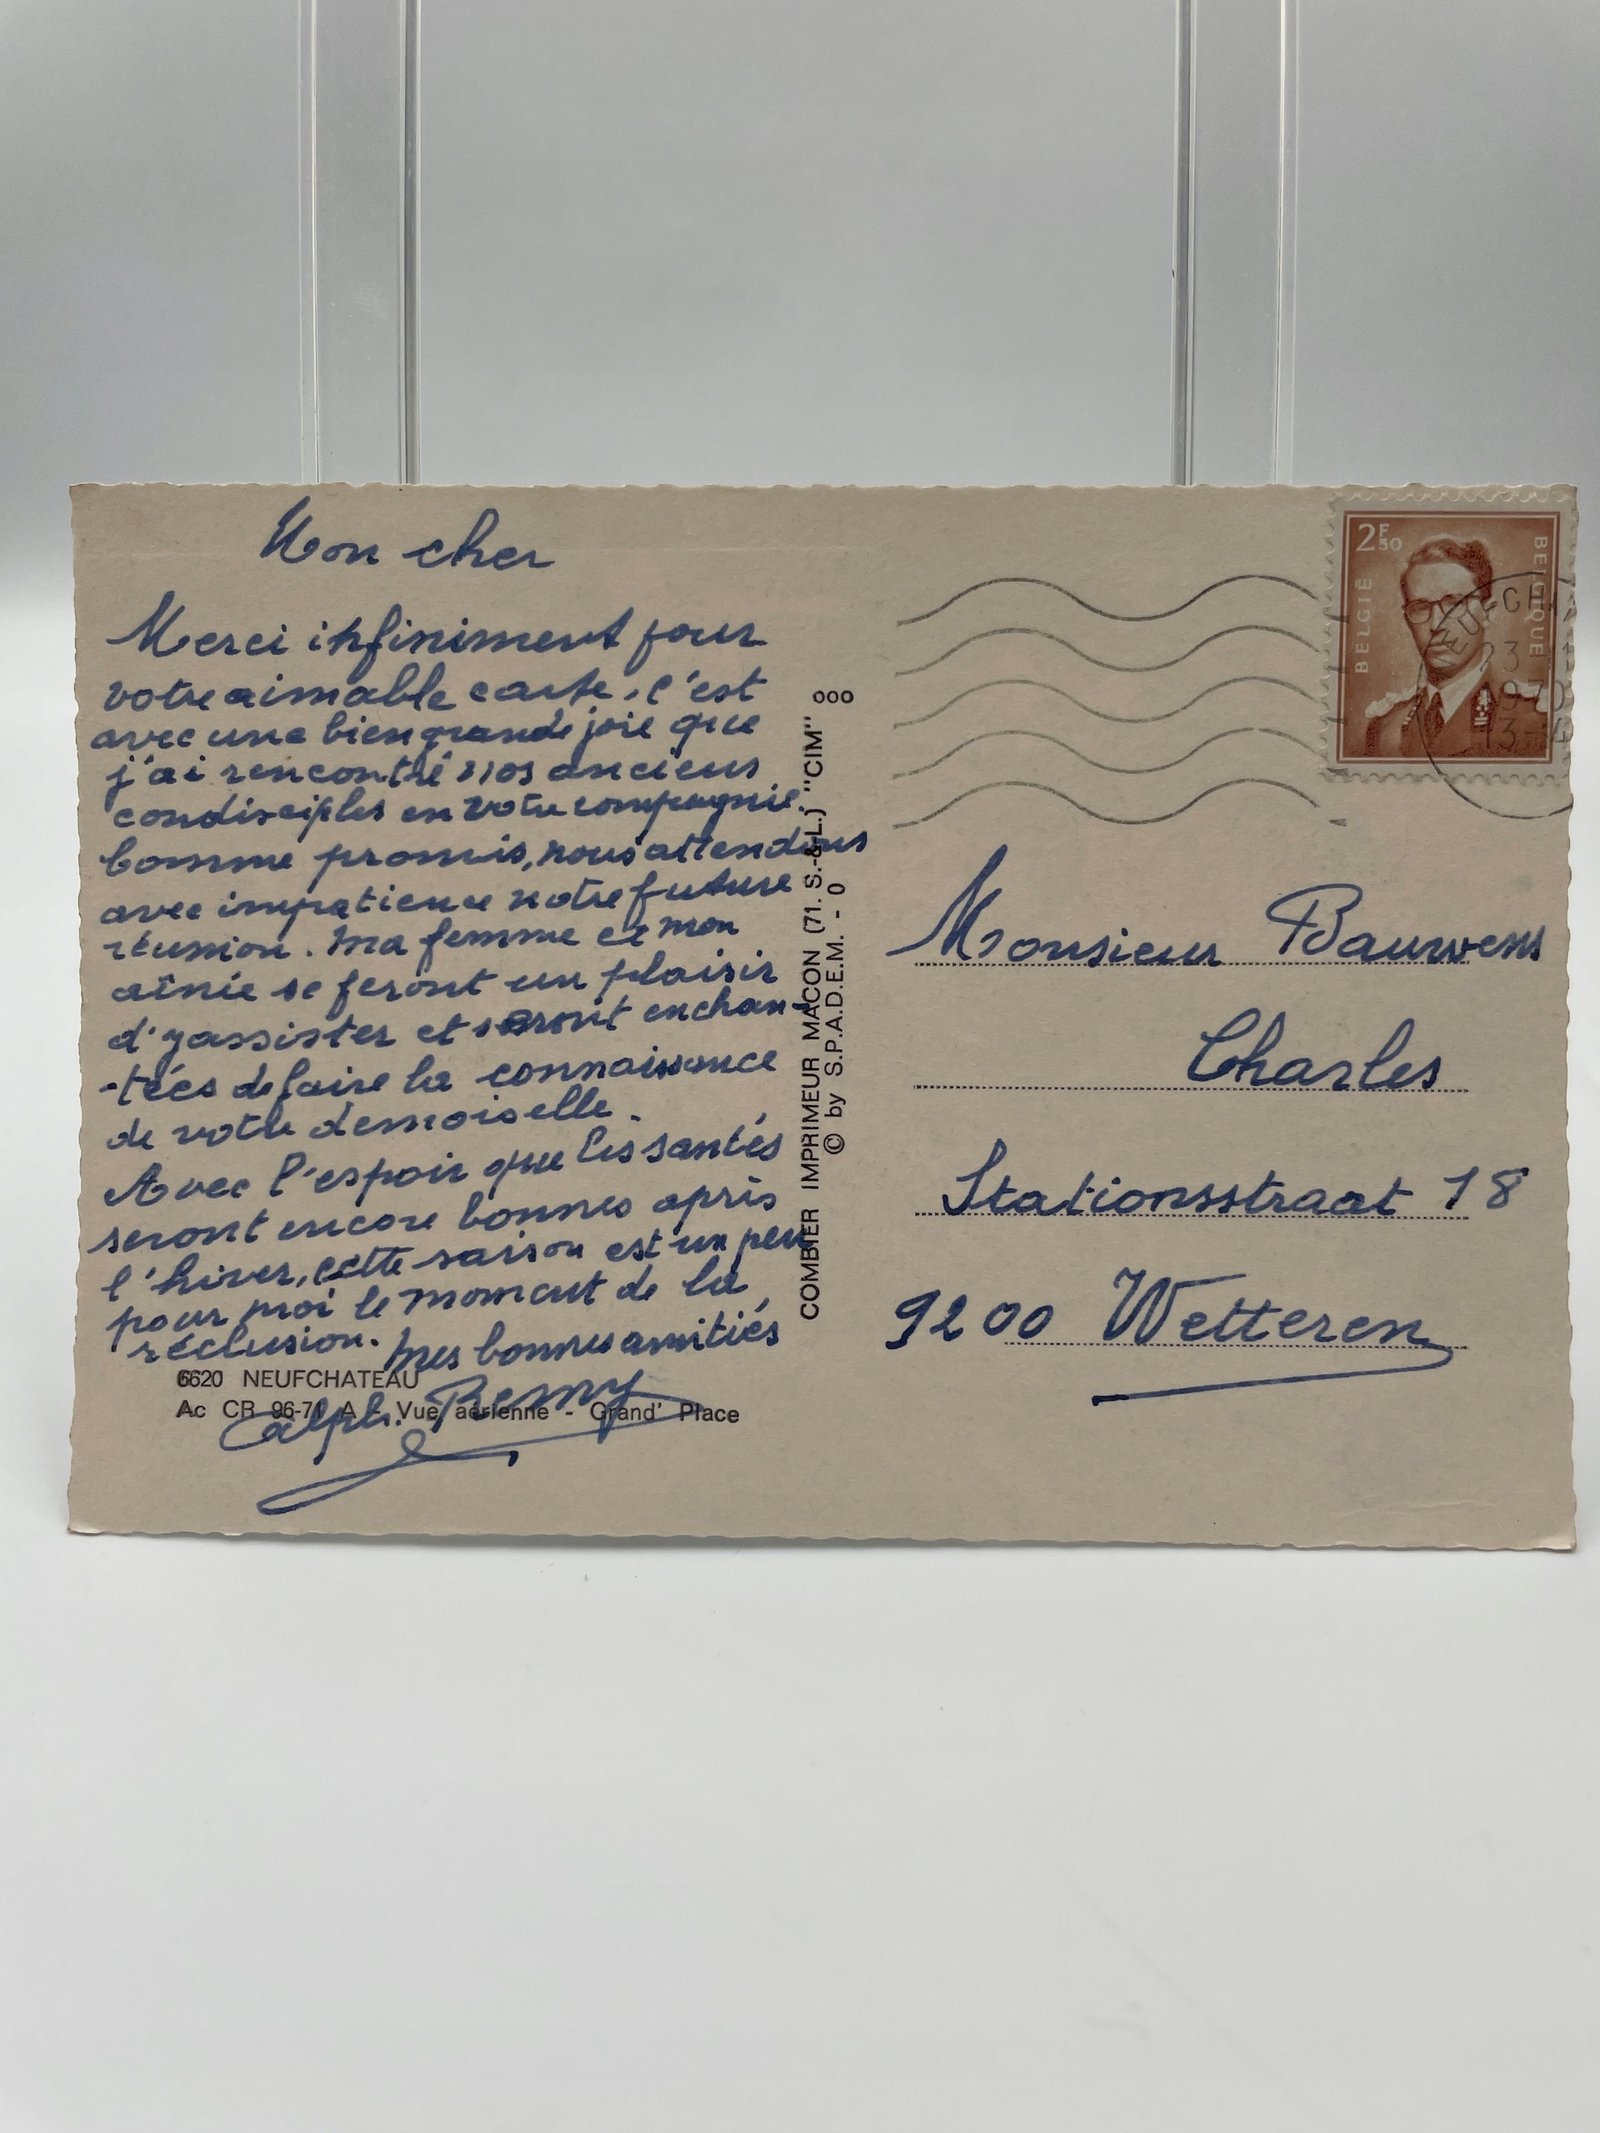 Mon cher
Merci infiniment pour
votre aimable carte, c'est
avec une bien grande joie que
j'ai rencontré nos anciens
condisciples en votre compagnie.
Comme promis, nous attendons
avec impatience notre future
réunion. Ma femme et mon
aînée se feront un plaisir
d'y assister et seront enchan-
-tées de faire la connaissance
de votre demoiselle.
Avec l'espoir que les santés
seront encore bonnes après
l'hiver, cette saison est un peu
pour moi le moment de la
réclusion. Mes bonnes amitiés
6620 NEUFCHATEAU
Ac CR 96-71 A - Vue aérienne - Grand' Place
Alph. Remy
COMBIER IMPRIMEUR MACON (71. S.-&-L.) "CIM"
© by S.P.A.D.E.M. - 0
ooo
2F50
BELGIË
BELGIQUE
NEUFCH
23
1970
13-
Monsieur Bauwens
Charles
Stationsstraat 18
9200 Wetteren